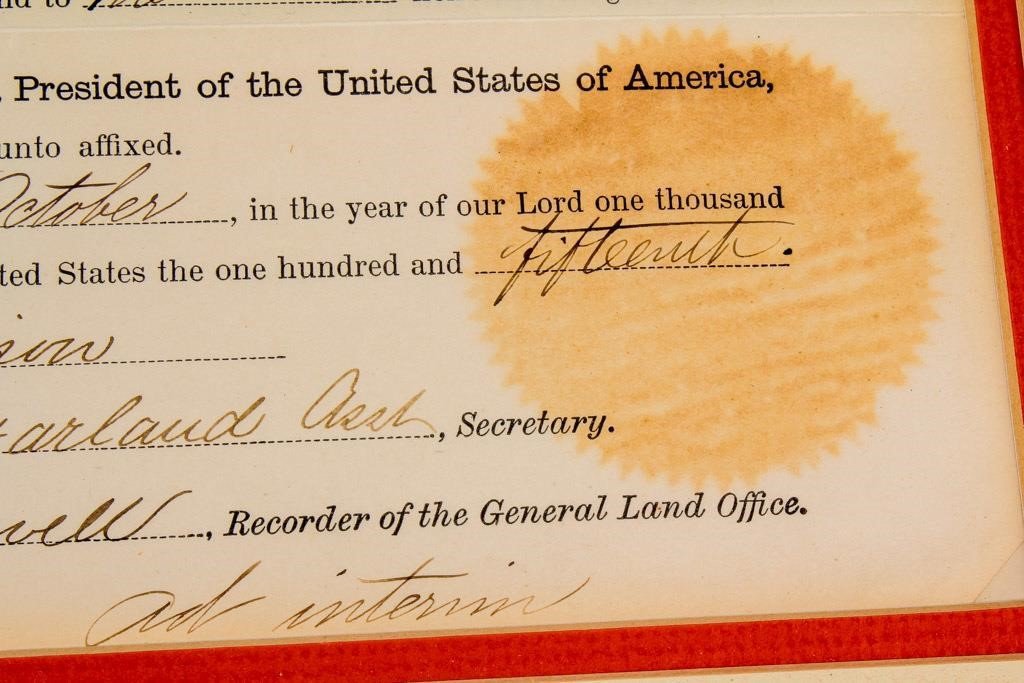 , President of the United States of America,
unto affixed.
October, in the year of our Lord one thousand
ted States the one hundred and fifteenth.
ison
arland Asst, Secretary.
well, Recorder of the General Land Office.
ad interim